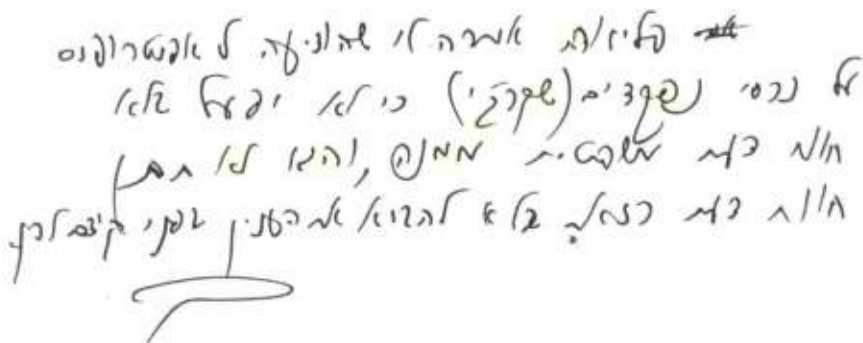 פליאה אמרה לי שהוצעה לאפוטרופוס
על נכסי נפקדים (שקרצ'י) כי לא יפעל בלא
חוות דעת משפטית ממנה, והיא לא תתן
חוות דעת כזאת בלא להביא את הענין בפני קודם לכן.